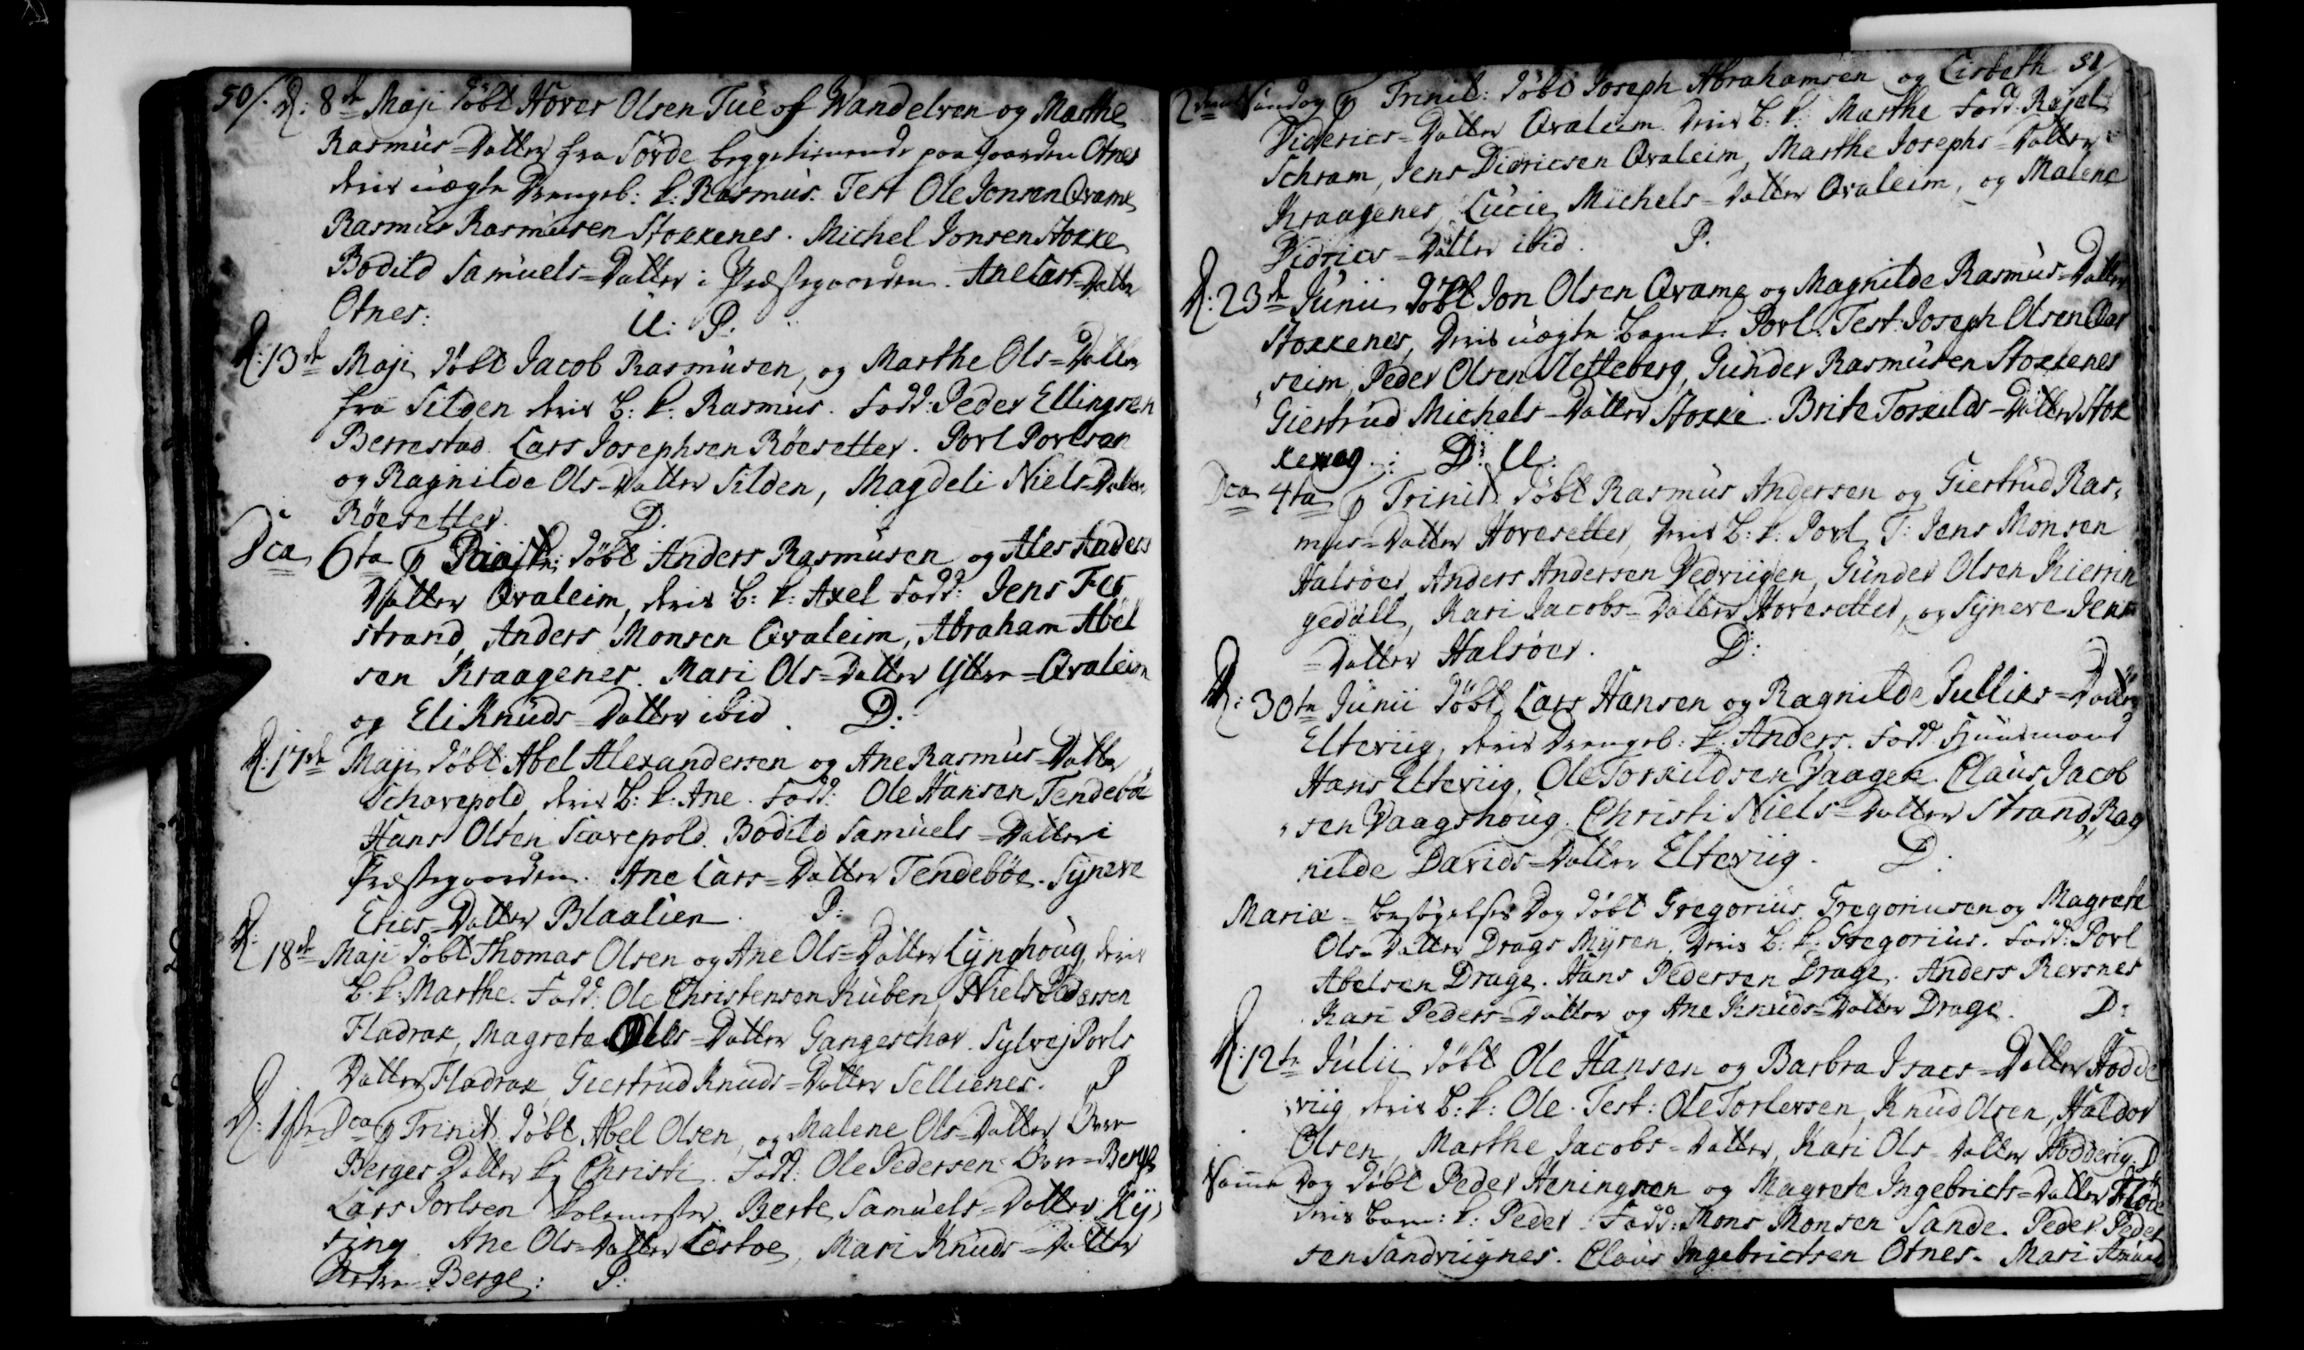 50/. D: 8de Maji döbt Hover Olsen Tue of Wandelven og Marthe
Rasmus-Datter fra Sörde begge tienende paa Gaarden Otnes
deris uægte Drengeb: k: Rasmus. Test Ole Jonsen Qvame
Rasmus Rasmusen Stokkenes. Michel Jonsen Stokke
Bodild Samuels-Datter i Præstegaarden. Ane Lars-Datter
Otnes. U: P:
D: 13de Maji döbt Jacob Rasmusen, og Marthe Ols-Datter
fra Silden deris B: k: Rasmus. Fadd: Peder Ellingsen
Berrestad. Lars Josephsen Röesetter. Povl Povlsen
og Ragnilde Ols-Datter Silden, Magdeli Niels-Datter
Röesetter. D.
Dca 6ta p Paask: döbt Anders Rasmusen og Ales Anders
Datter Qvaleim, deris B: k: Axel Fadd: Jens Fer
strand, Anders Monsen Qvaleim, Abraham Abel
sen Kraagenes. Mari Ols-Datter Ytter-Qvaleim
og Eli Knuds-Datter ibid. D:
D: 17de Maji döbt Abel Alexandersen og Ane Rasmus-Datter
Schorepold, deris B: k: Ane. Fadd: Ole Hansen Tendeböe
Hans Olsen Scorepold. Bodild Samuels-Datter i
Præstegaarden. Ane Lars-Datter Tendeböe. Synere
Erics-Datter Blaalien. P:
D: 18de Maji döbt Thomas Olsen og Ane Ols-Datter Lynghoug, deris
B: k: Marthe. Fadd: Ole Christensen Kuben, Niels Pedersen
Fladrak, Magrete Ols-Datter Gangeschar. Sylvej Povls
Datter Fladrak, Giertrud Knuds-Datter Sellienes. P
D: 1ste Dca p Trinit: döbt Abel Olsen, og Malene Ols-Datter Over
Berges Datter k: Christi. Fadd: Ole Pedersen Over-Berge
Lars Povlsen Berte Samuels-Datter Ry,
sing. Ane Ols-Datter Lestoe, Mari Knuds-Datter
Nedre Berge: P:
2den Søndag p Trinit: döbt Joseph Abrahamsen og Lisbeth 51
Dideries-Datter Qvaleim. deris B: k: Marthe Fadd: Rajel
Schram, Jens Didricsen Qvaleim, Marthe Josephs-Datter
Kraagenes, Lucie Michels-Datter Qvaleim, og Malene
Didrics-Datter ibid. P.
D: 23de Junii döbt Jon Olsen Qvame og Magnilde Rasmus-Datter
Stokkenes, deris uægte Barn k. Povl. Test: Joseph Olsen Bar
seim, Peder Olsen Sletteberg, Gunder Rasmusen Stokkenes
Giertrud Michels-Datter Stokke. Brite Torkilds-Datter Stok
kenes. D: U:
Dca 4ta p Trinit: döbt Rasmus Andersen og Giertrud Ras,
mus-Datter Hovesetter, deris B: k: Povl T: Jens Monsen
Halsöer, Anders Andersen Vedviigen, Gunder Olsen Kierrin
gedall, Kari Jacobs-Datter Hovesetter, og Synere Jens
-Datter Halsöer. D:
D: 30te Junii döbt Lars Hansen og Ragnilde Jullies-Datter
Elteviig, deris Drengeb: k: Anders. Fadd: Huusmand
Hans Elteviig, Ole Torkildsen Vaagen. Claus Jacob
sen Vaagshoug. Christi Niels-Datter Strand, Rag
nilde Davids-Datter Elteviig. D.
Mariæ-Besögelses Dag döbt Gregorius Gregoriusen og Magrete
Ols-Datter Drags Myren, deris B: k: Gregorius. Fadd: Povl
Abelsen Drage. Hans Pedersen Drage. Anders Revsnes
Kari Peders-Datter og Ane Knuds-Datter Drage. D:
D: 12te Julii döbt Ole Hansen og Barbra Isacs-Datter Hodde
viig, deris B: k: Ole. Test: Ole Torlevsen, Knud Olsen, Haldor
Olsen, Marthe Jacobs-Datter, Kari Ols-Datter Hoddeviig. D
Samme Dag döbt Peder Heningsen og Magrete Ingebricts-Datter Flöde
deris Barn: k: Peder. Fadd: Mons Monsen Sande. Peder Peder
sen Sandviignes. Claus Ingebrictsen Otnes. Mari